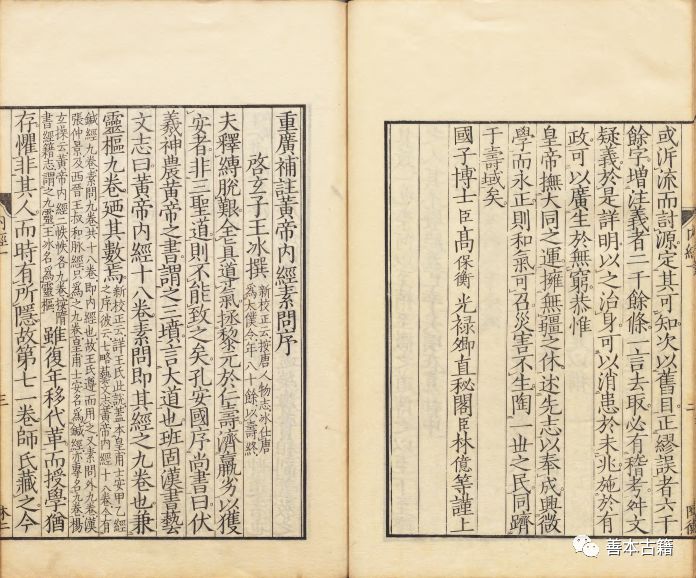 或泝流而討源定其可知次以舊目正繆誤者六千
餘字增注義者二千餘條一言去取必有稽考舛文
疑義於是詳明以之治身可以消患於未兆施於有
政可以廣生於無窮恭惟
皇帝撫大同之運擁無疆之休述先志以奉成興微
學而永正則和氣可召災害不生陶一世之民同躋
于壽域矣
國子博士臣髙保衡 光祿卿直秘閣臣林億等謹上
重廣補註黃帝內經素問序
啓玄子王冰撰 新校正云按唐人物志冰仕唐
爲太僕令年八十餘以壽終
夫釋縛脫艱全眞導氣拯黎元於仁壽濟羸劣以獲
安者非三聖道則不能致之矣孔安國序尚書曰伏
羲神農黃帝之書謂之三墳言大道也班固漢書藝
文志曰黃帝內經十八卷素問即其經之九卷也兼
靈樞九卷廼其數焉 新校正云詳王氏此說蓋本皇甫士安甲乙經
之序彼云七略藝文志黃帝內經十八卷今有
鍼經九卷素問九卷共十八卷即內經也故王氏遵而用之又素問外九卷漢
張仲景及西晉王叔和脉經只爲之九卷皇甫士安名爲鍼經亦專名九卷楊
玄操云黃帝內經二帙帙各九卷按隋
書經籍志謂之九靈王冰名爲靈樞 雖復年移代革而授學猶
存懼非其人而時有所隱故第七一卷師氏藏之今
內經一
三
二
善本古籍